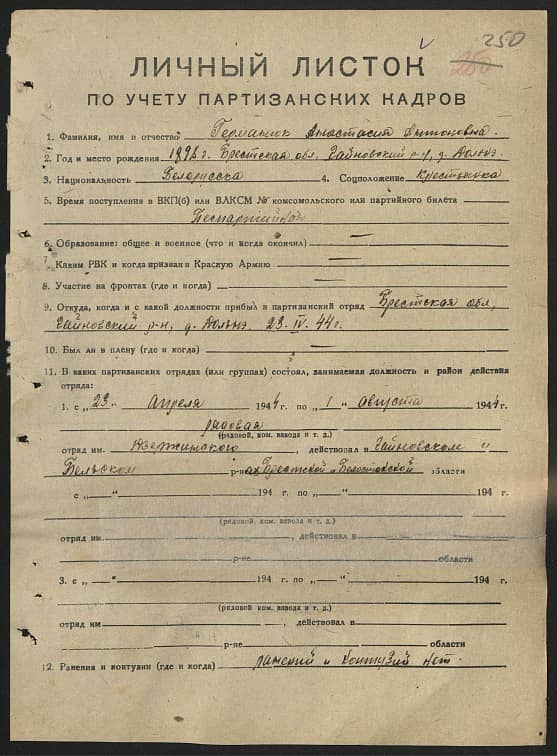 250
ЛИЧНЫЙ ЛИСТОК
ПО УЧЕТУ ПАРТИЗАНСКИХ КАДРОВ
1. Фамилия, имя и отчество Германюк Анастасия Антоновна.
2. Год и место рождения Брестская обл. Гайновский р-н, д.
3. Национальность Белорусска 4. Соцположение Крестьянка
5. Время поступления в ВКП(б) или ВЛКСМ № комсомольского или партийного билета
Беспартийная
6. Образование: общее и военное (что и когда окончил) —
7. Каким РВК и когда призван в Красную Армию —
8. Участие на фронтах (где и когда) —
9. Откуда, когда и с какой должности прибыл в партизанский отряд Брестская обл,
Гайновский р-н, д. 23. IV. 44 г.
10. Был ли в плену (где и когда) —
11. В каких партизанских отрядах (или группах) состоял, занимаемая должность и район действия
отряда:
1. с „23“ Апреля 1944 г. по „1“ августа 1944 г.
рядовая
(рядовой, ком. взвода и т. д.)
отряд им. Дзержинского, действовал в Гайновском и
Бельском р-нах Брестской и Белостокской области
с „—“ 194 г. по „—“ 194 г.
(рядовой, ком. взвода и т. д.)
отряд им. , действовал в
р-не области
3. с „—“ 194 г. по „—“ 194 г.
(рядовой, ком. взвода и т. д.)
отряд им , действовал в
р-не области
12. Ранения и контузии (где и когда) и контузий нет.